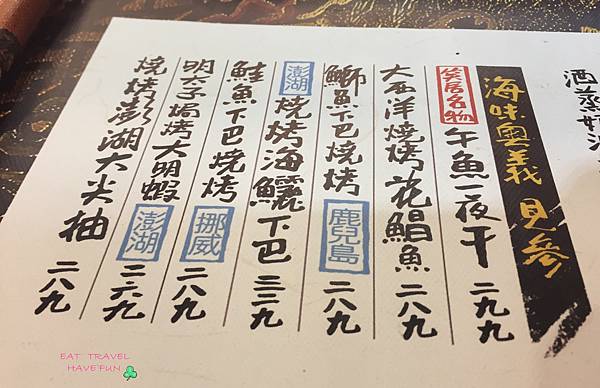 酒蒸
海味奧義 見參
笑居名物 午魚一夜干 二九九
大西洋燒烤花鯧魚 二八九
鰤魚下巴燒烤 鹿兒島 二八九
澎湖 燒烤海鱺下巴 三二九
鮭魚下巴燒烤 挪威 二八九
明太子焗烤大明蝦 澎湖 二六九
燒烤澎湖大尖抽 二八九
EAT TRAVEL
HAVE FUN